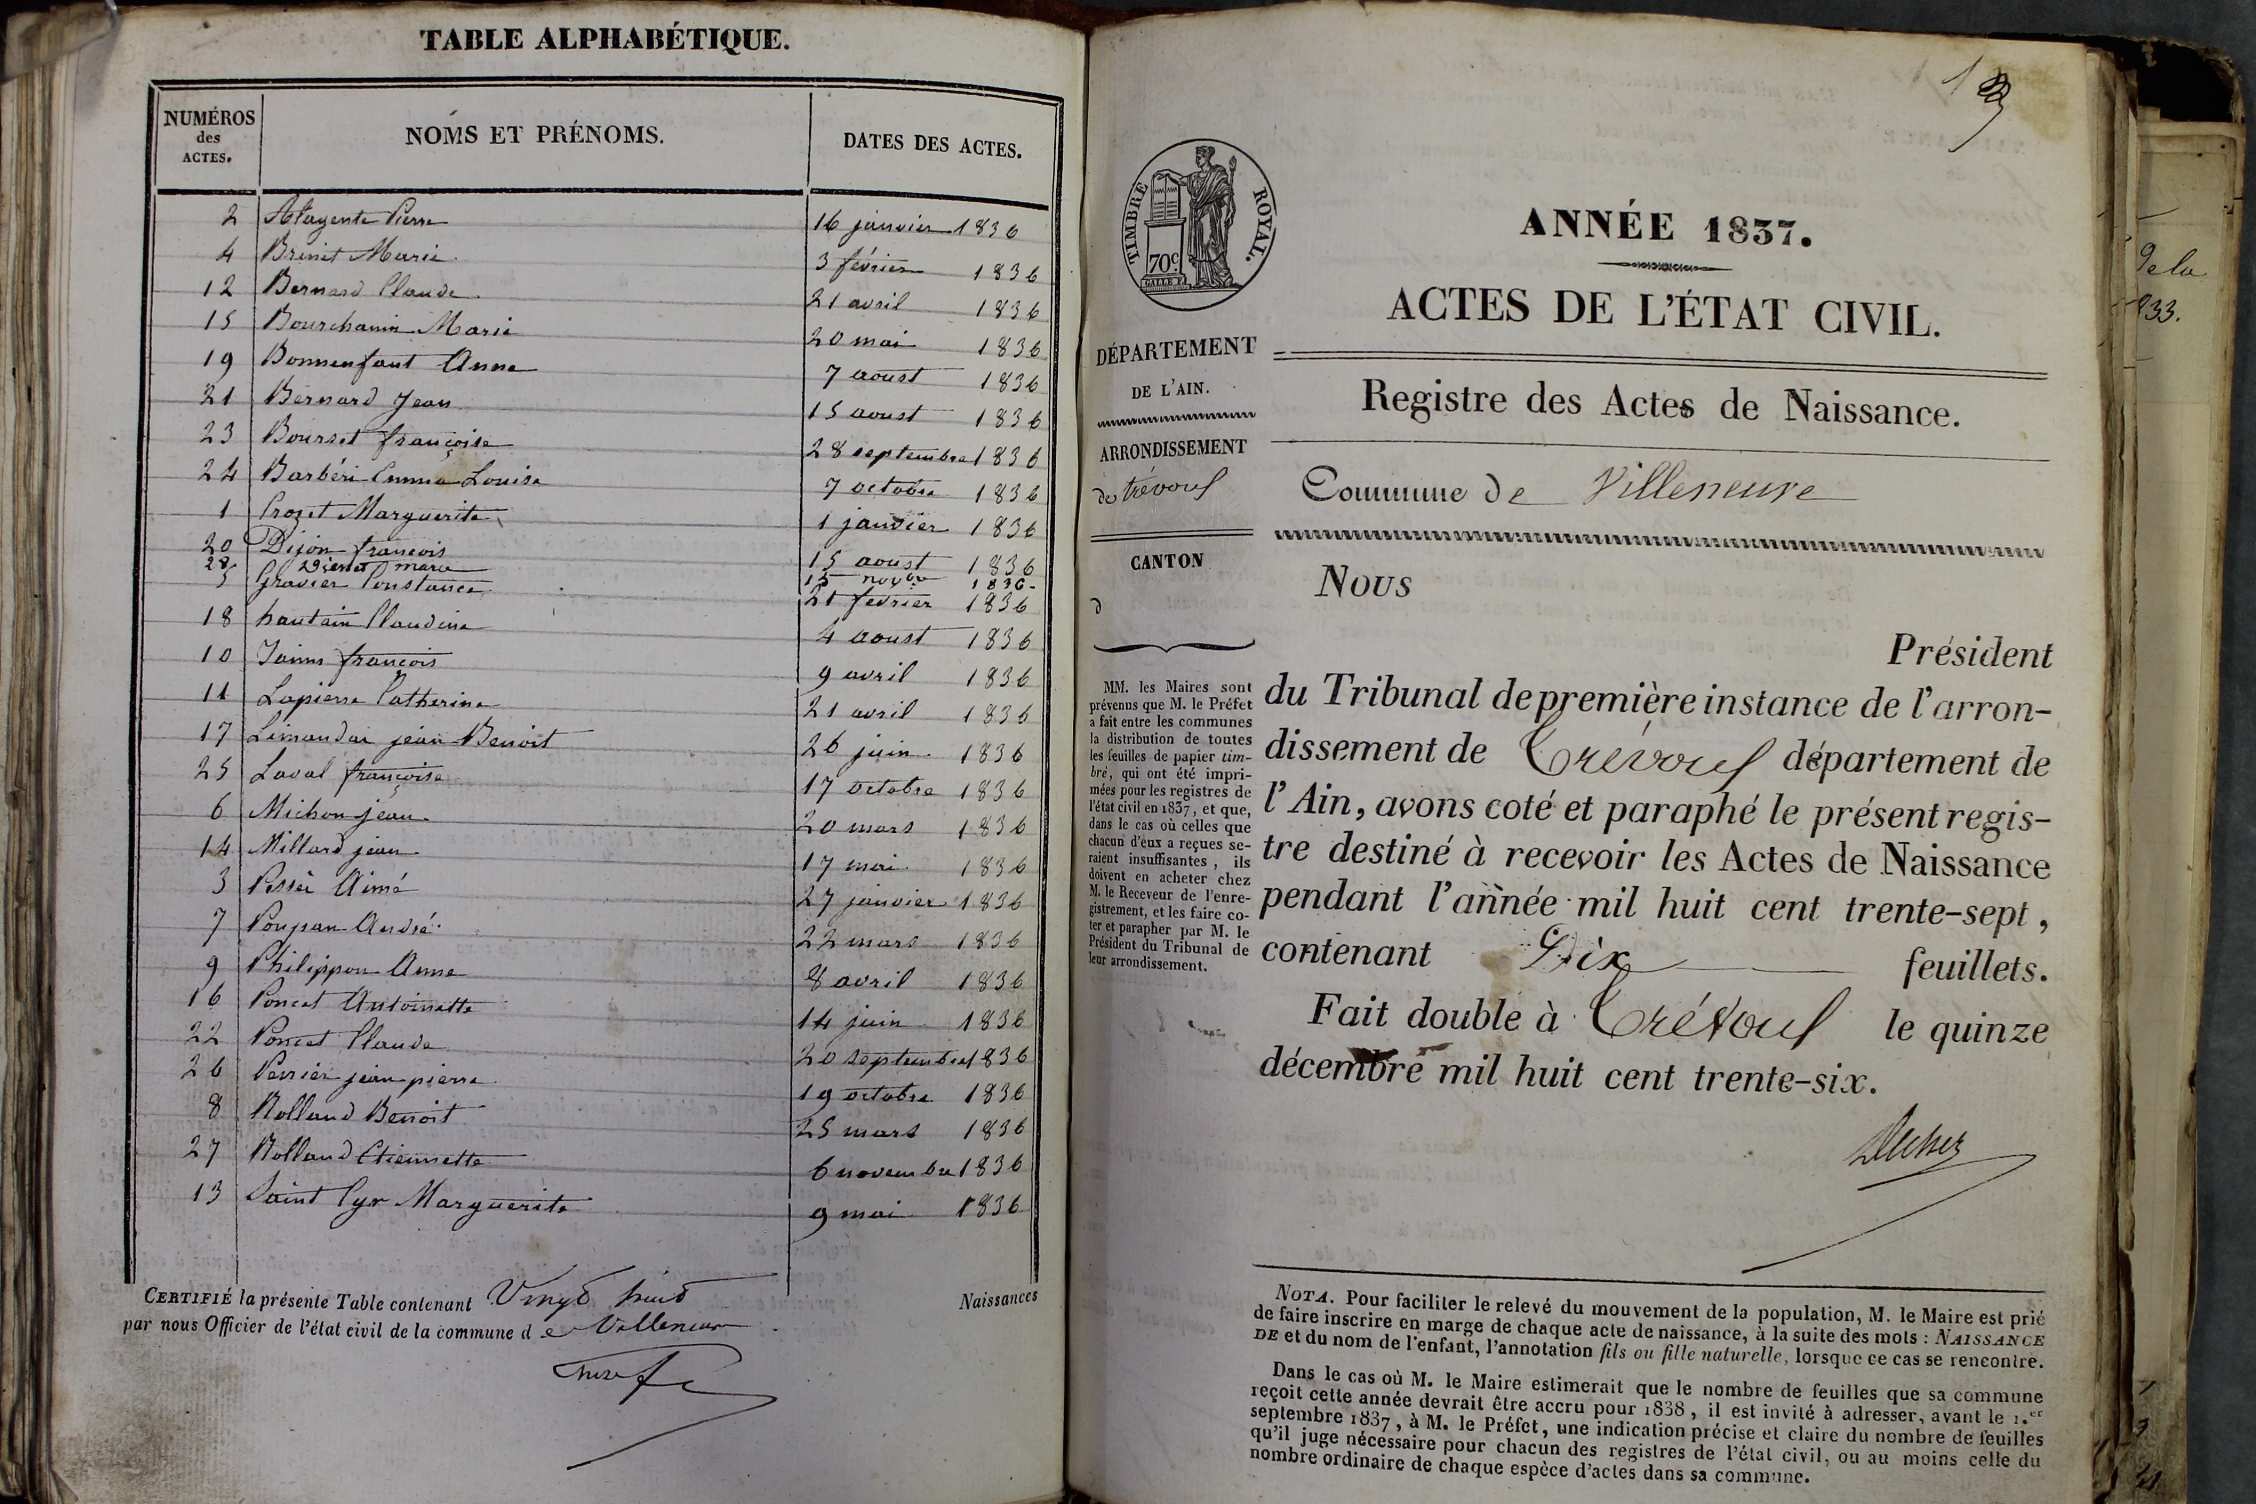 TABLE ALPHABÉTIQUE.
NUMÉROS des ACTES. NOMS ET PRÉNOMS. DATES DES ACTES.
2 Pierre 16 janvier 1836
4 Brenet Marie 3 février 1836
12 Bernard Claude 21 avril 1836
15 Bourchanin Marie 20 mai 1836
19 Bonnenfant Anne 7 aoust 1836
21 Bernard Jean 15 aoust 1836
23 Bourset françoise 28 septembre 1836
24 Barbéri Emma Louise 7 octobre 1836
1 Crozet Marguerite 1 janvier 1836
20 Dijon françois 15 aoust 1836
28 marie 15 novbre 1836
5 Gravier Constance 21 février 1836
18 hautain Claudine 4 aoust 1836
10 françois 9 avril 1836
11 Lapierre Catherine 21 avril 1836
17 Limandai jean Benoit 26 juin 1836
25 Laval françoise 17 octobre 1836
6 Michon jean 20 mars 1836
14 Millard jean 17 mai 1836
3 Aimé 27 janvier 1836
7 André 22 mars 1836
9 Philippon Anne 8 avril 1836
16 Poncet Antoinette 14 juin 1836
22 Poncet Claude 20 septembre 1836
26 Perrier jean pierre 19 octobre 1836
8 Rolland Benoit 25 mars 1836
27 Rolland Etiennette 6 novembre 1836
13 Saint Cyr Marguerite 9 mai 1836
CERTIFIÉ la présente Table contenant Vingt huit Naissances
par nous Officier de l'état civil de la commune d e Villeneuve
TIMBRE ROYAL.
70c
ANNÉE 1837.
ACTES DE L'ÉTAT CIVIL.
DÉPARTEMENT
DE L'AIN.
ARRONDISSEMENT
de trévoux
CANTON
d
MM. les Maires sont
prévenus que M. le Préfet
a fait entre les communes
la distribution de toutes
les feuilles de papier tim-
bré, qui ont été impri-
mées pour les registres de
l'état civil en 1837, et que,
dans le cas où celles que
chacun d'eux a reçues se-
raient insuffisantes, ils
doivent en acheter chez
M. le Receveur de l'enre-
gistrement, et les faire co-
ter et parapher par M. le
Président du Tribunal de
leur arrondissement.
Registre des Actes de Naissance.
Commune de Villeneuve
Nous
Président
du Tribunal de première instance de l'arron-
dissement de Trévoux département de
l'Ain, avons coté et paraphé le présent regis-
tre destiné à recevoir les Actes de Naissance
pendant l'année mil huit cent trente-sept,
contenant Dix feuillets.
Fait double à Trévoux le quinze
décembre mil huit cent trente-six.
NOTA. Pour faciliter le relevé du mouvement de la population, M. le Maire est prié
de faire inscrire en marge de chaque acte de naissance, à la suite des mots : NAISSANCE
DE et du nom de l'enfant, l'annotation fils ou fille naturelle, lorsque ce cas se rencontre.
Dans le cas où M. le Maire estimerait que le nombre de feuilles que sa commune
reçoit cette année devrait être accru pour 1838, il est invité à adresser, avant le 1.er
septembre 1837, à M. le Préfet, une indication précise et claire du nombre de feuilles
qu'il juge nécessaire pour chacun des registres de l'état civil, ou au moins celle du
nombre ordinaire de chaque espèce d'actes dans sa commune.